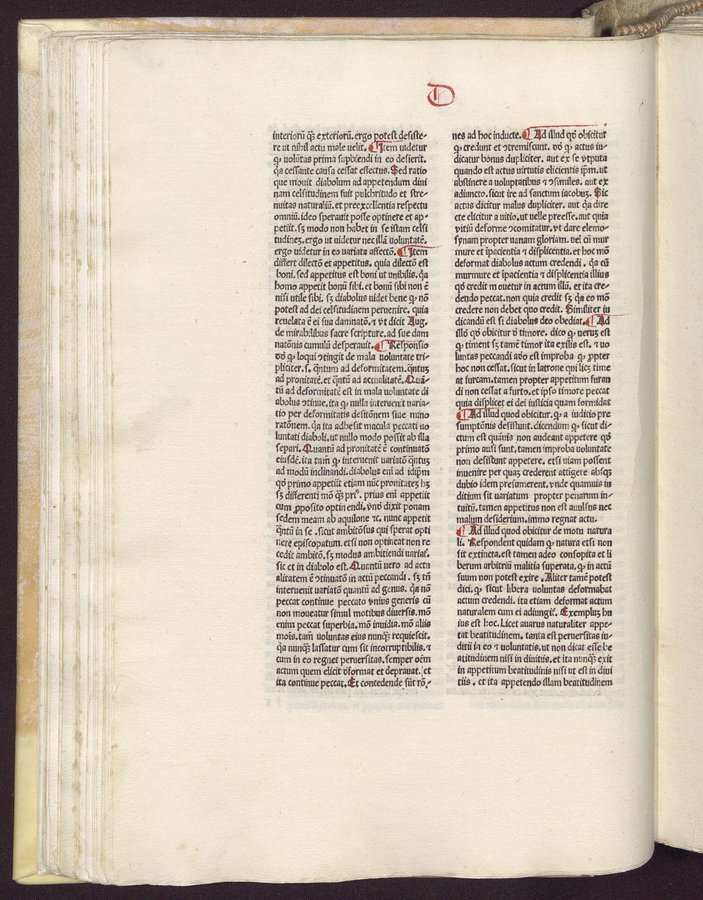 D
interiorū q̄ꝫ exteriorū. ergo potest desiste-
re ut nihil actu male uelit. ¶ Item uidetur
ꝙ uolūtas prima supbiendi in eo desierit.
q̄a cessante causa cessat effectus. Sed ratio
que mouit diabolum ad appetendum diui
nam celsitudinem fuit pulchritudo et stre-
nuitas naturaliū. et preexcellentia respectu
omniū. ideo sperauit posse optinere et ap-
petiit. sꝫ modo non habet in se istam celsi
tudinez. ergo ut uidetur nec illā uoluntatē.
ergo uidetur in eo variata affectō. ¶ Item
differt dilectō et appetitus. quia dilectō est
boni. sed appetitus est boni ut unibilis. q̄a
homo appetit bonū sibi. et bonū sibi non ē
nisi utile sibi. sꝫ diabolus uidet bene ꝙ nō
potest ad dei celsitudinem peruenire. quia
reuelata ē ei sua damnatō. ⁊ vt dicit Aug.
de mirabilibus sacre scripture. ad sue dam
natōnis cumulū desperauit. ¶ Responsio
vō ꝙ loqui ꝯtingit de mala voluntate tri-
pliciter. s. q̄ntum ad deformitatem. q̄ntuꝫ
ad pronitatē. et q̄ntū ad actualitatē. Quā-
tū ad deformitatē est in mala uoluntate di
abolus ꝯtinue. ita ꝙ nulla interuenit varia-
tio per deformitatis desitōnem siue mino
ratōnem. q̄a ita adhesit macula peccati uo
luntati diaboli. ut nullo modo possit ab illa
separi. Quantū ad pronitatē ē continuatō
eiusdē. ita tam̄ ꝙ interuenit variatō q̄ntuꝫ
ad modū inclinandi. diabolus em̄ ad idip̄m
qō primo appetiit etiam nūc pronitatez hꝫ
sꝫ differenti mō q̄ꝫ pri⁹. prius em̄ appetiit
cum ꝓposito optinendi. vn̄ dixit ponam
sedem meam ab aquilone ⁊c. nunc appetit
q̄ntū in se. sicut ambitiosus qui sperat opti
nere episcopatum. etsi non optineat non re
cedit ambitō. sꝫ modus ambitiendi variat̄.
sic et in diabolo est. Quantū uero ad actu
alitatem ē ꝯtinuatō in actu peccandi. sꝫ tn̄
interuenit variatō quantū ad genus. q̄a nō
peccat continue peccato vnius generis cū
non moueatur simul motibus diuersis. mō
enim peccat superbia. mō inuidia. mō aliis
mōis. tam̄ voluntas eius nunq̄ꝫ requiescit.
q̄a nunq̄ꝫ lassatur cum sit incorruptibilis. ⁊
cum in eo regnet peruersitas. semper oēm
actum quem elicit ꝺformat et deprauat. et
ita continue peccat. Et concedende sūt rō-
nes ad hoc inducte. ¶ Ad illud qō obicitur
ꝙ credunt et ꝯtremiscunt. vō ꝙ actus iu-
dicatur bonus dupliciter. aut ex se vtputa
quando est actus virtutis elicientis ip̄m. ut
abstinere a voluptatibus ⁊ ꝯsimiles. aut ex
adiuncto. sicut ire ad sanctum iacobuꝫ. Sic
actus dicitur malus dupliciter. aut q̄a dire
cte elicitur a uitio. ut uelle preesse. aut quia
vitiū deforme ꝯcomitatur. vt dare elemo-
synam propter uanam gloriam. vel cū mur
mure et īpacientia ⁊ displicentia. et hoc mō
deformat diabolus actum credendi. q̄a cū
murmure et īpacientia ⁊ displicentia illius
qō credit mouetur in actum illū. et ita cre-
dendo peccat. non quia credit sꝫ q̄a eo mō
credere non debet quo credit. Similiter in
dicandū est si diabolus deo obediat. ¶ Ad
illō qō obicitur ꝺ timore. dico ꝙ veruꝫ est
ꝙ timent sꝫ tamē timor ita exilis est. ⁊ uo
luntas peccandi adeo est improba ꝙ ꝓpter
hoc non cessat. sicut in latrone qui licꝫ time
at furcam. tamen propter appetitum furan
di non cessat a furto. et ipso timore peccat
quia displicet ei dei iusticia quam formidat
¶ Ad illud quod obicitur. ꝙ a iuditio pre
sumptōnis desistunt. dicendum ꝙ sicut di-
ctum est quāuis non audeant appetere qō
primo ausi sunt. tamen improba voluntate
non desistunt appetere. etsi uiam possent
inuenire per quaꝫ crederent attigere absqꝫ
dubio idem presumerent. vnde quamuis iu
ditium sit variatum propter penarum in-
tuitū. tamen appetitus non est auulsus nec
malum desiderium. immo regnat actu.
¶ Ad illud quod obicitur de motu natura
li. Respondent quidam ꝙ natura etsi non
sit extincta. est tamen adeo consopita et li
berum arbitriū malitia superata. ꝙ in actū
suum non potest exire. Aliter tamē potest
dici. ꝙ sicut libera voluntas deformabat
actum credendi. ita etiam deformat actum
naturalem cum ei adiungit̄. Exempluꝫ hu
ius est hoc. Licet auarus naturaliter appe-
tat beatitudinem. tanta est peruersitas iu-
ditii in eo ⁊ uoluntatis. ut non dicat esse be
atitudinem nisi in diuitiis. et ita nunq̄ꝫ exit
in appetitum beatitudinis nisi ut est in diui
tiis. et ita appetendo illam beatitudinem